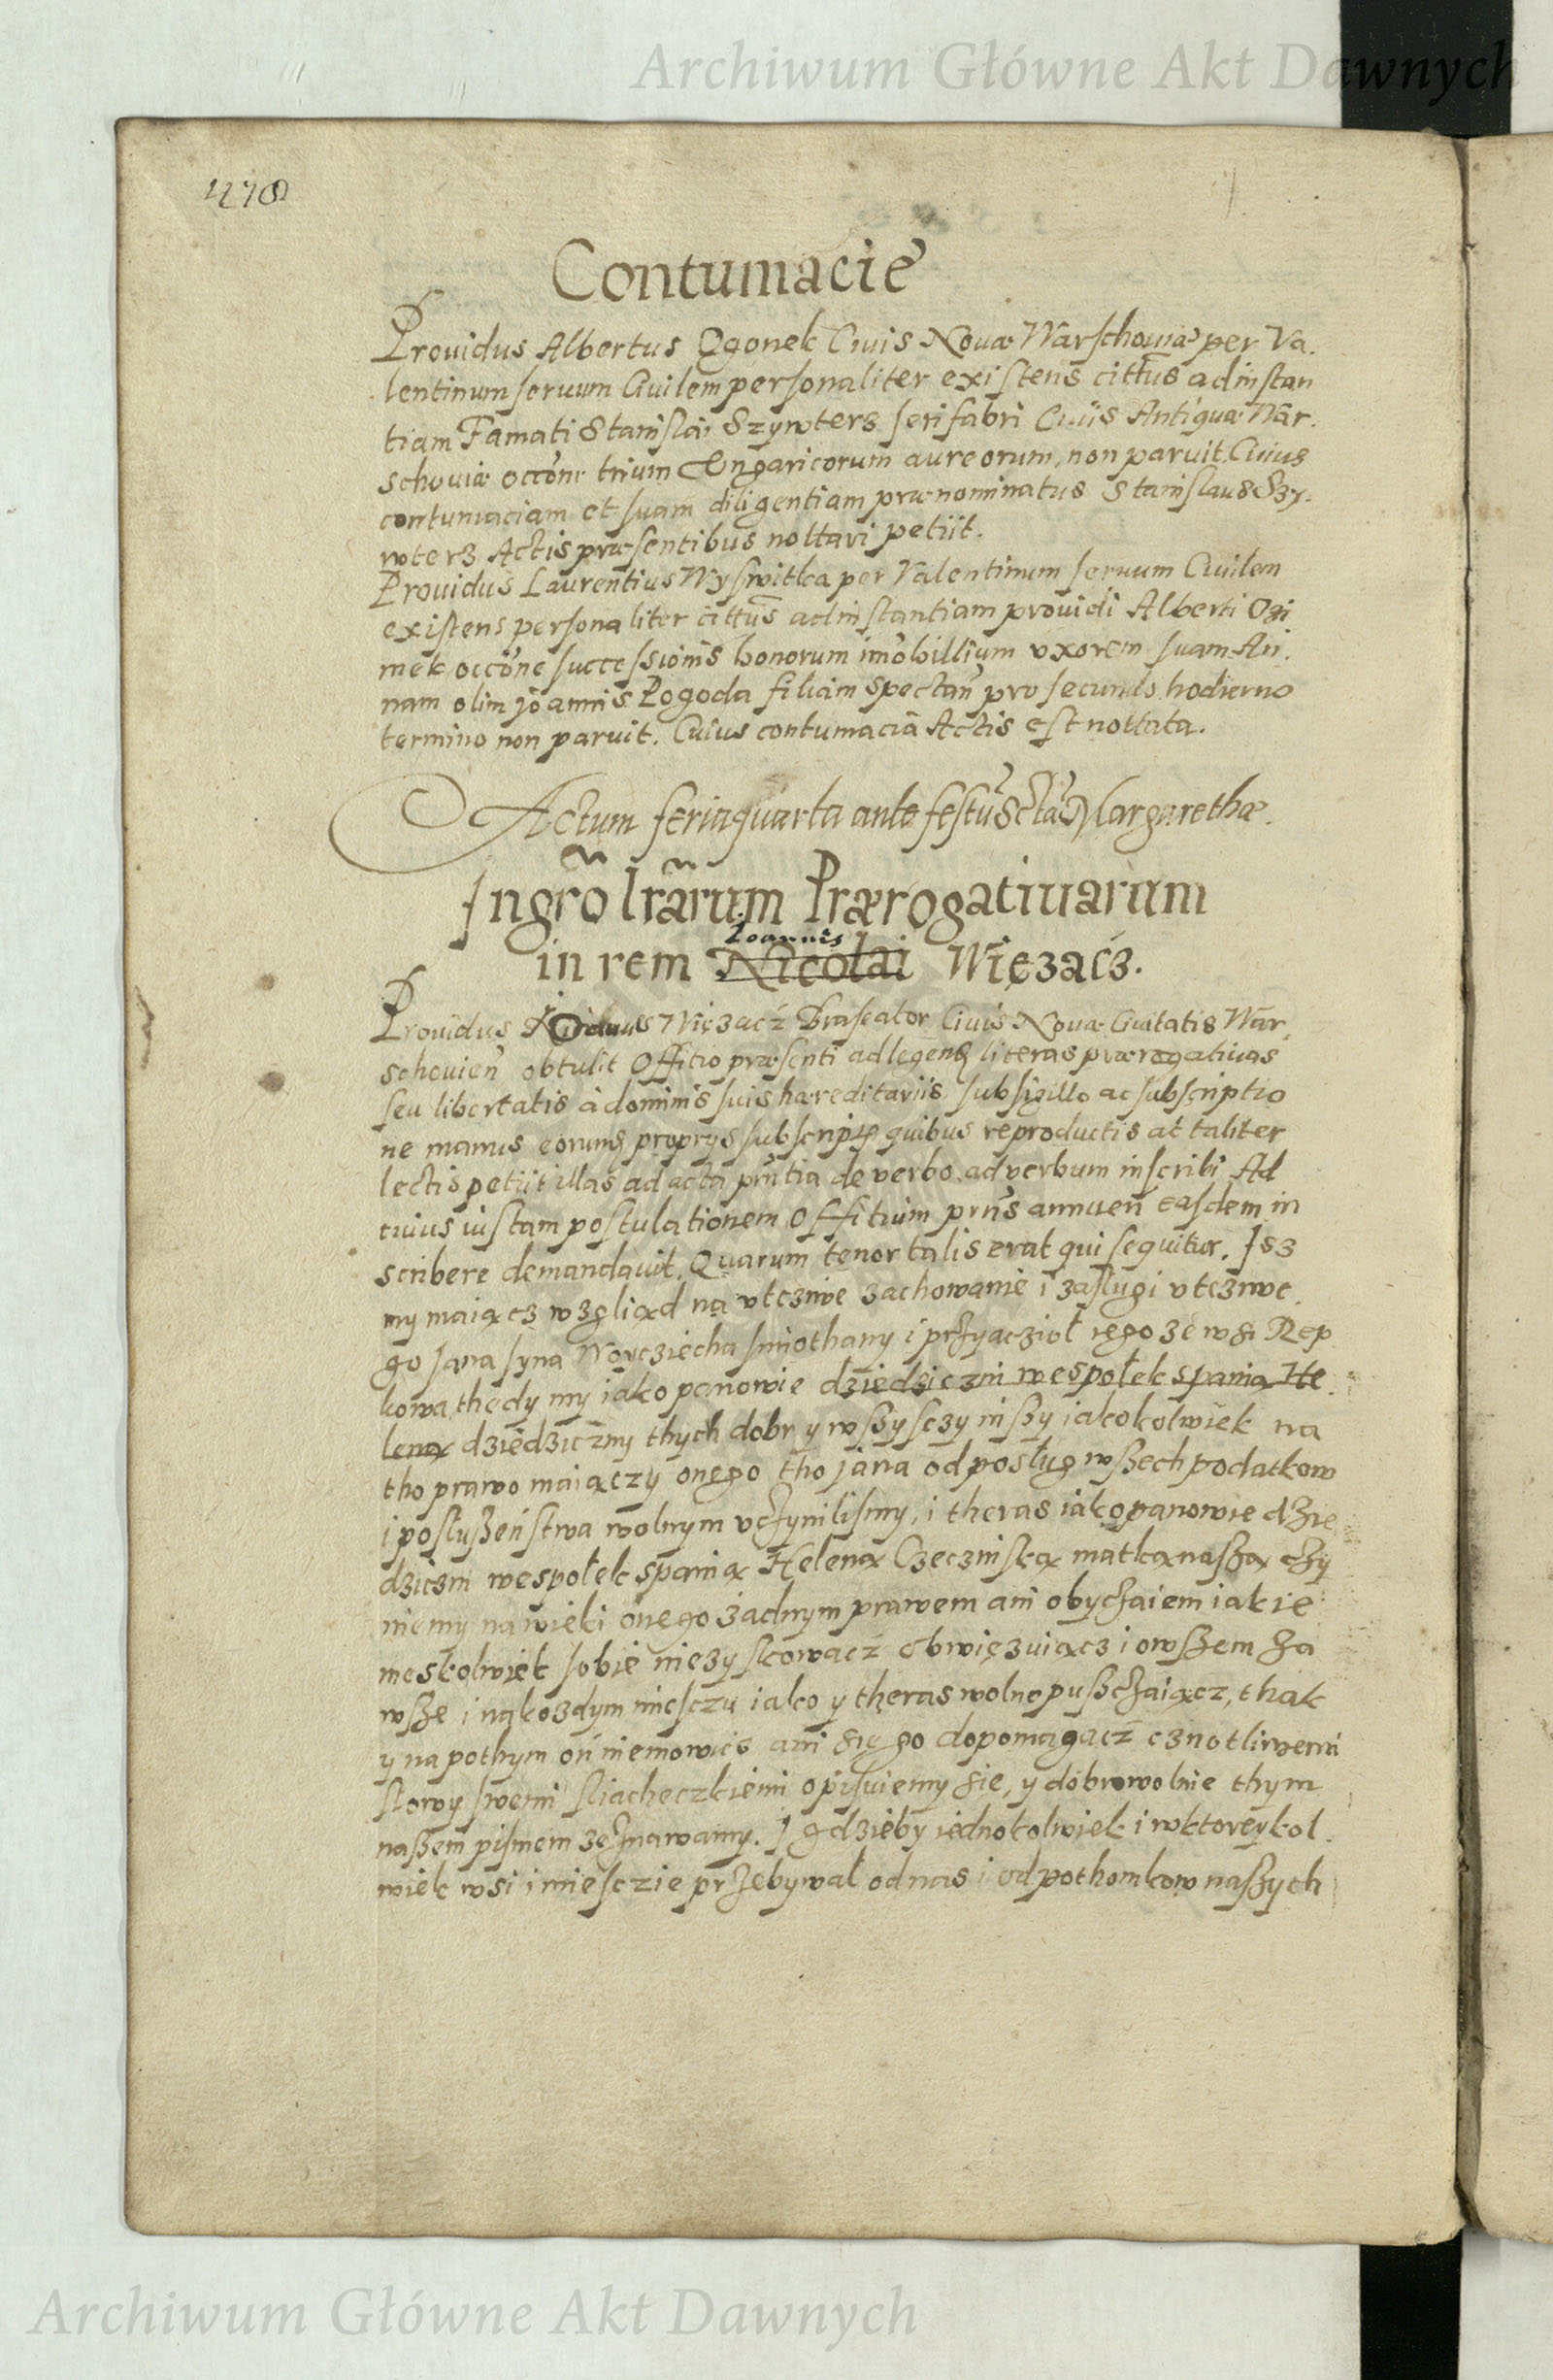 Archiwum Główne Akt Dawnych
478
Contumacie
Prouidus Albertus Ogonek Ciuis Nouæ Warschouiæ per Va.
lentinum seruum Ciuilem personaliter existens cittus ad instan
tiam Famati Stanislai Szywterz serifabri Ciuis Antiquæ War.
schouiæ occone trium Ungaricorum aureorum, non paruit. Cuius
contumaciam et suam diligentiam prænominatus Stanislaus Szy.
wterz Actis præsentibus nottari petiit.
Prouidus Laurentius Wyswitka per Valentinum seruum Ciuilem
existens personaliter cittus ad instantiam prouidi Alberti Ogi
mek occone successionis bonorum imobillium uxorem suam An.
nam olim Joannis Pogoda filiam spectan pro secundo hodierno
termino non paruit. Cuius contumacia Actis est nottata.
Actum feria quarta ante festu Sctæ Margarethæ.
Ingro lrarum Prærogatiuarum
Joannis
in rem Nicolai Więzacz.
Prouidus Więzacz Braseator Ciuis Nouæ Ciuitatis War
schouien obtulit Offitio præsenti ad legend literas prærogatiuas
seu libertatis à dominis suis hæreditariis sub sigillo ac subscriptio
ne manus eorum proprys subscrip quibus reproductis at taliter
lectis petiit illas ad acta prntia de verbo ad verbum inscribi. Ad
cuius iustam postulationem Offitium prns annuen easdem in
scribere demandauit. Quarum tenor talis erat qui sequitur. Isz
my maiącz wzgliąd na utcziwe zachowanie i zasługi utcziwe.
go Jana syna Woyciecha smothany i przyacziół iego ze wsi Rep
kowa, thedy my iako panowie dziedziczni wespołek s panią He.
leną dziedziczny thych dobr y wszysczy inszy iakokolwiek na
tho prawo maiączy onego tho jana od posług wszech podatkow
i posłuszeństwa wolnym uczynilismy, i theras iako panowie dzie
dziczni wespołek s panią Heleną Czeczinską matką naszą czy
niemy na wieki onego żadnym prawem ani obyczaiem iakie
meskolwiek sobie niezyskowacz obwięzuiącz i owszem za
wsze i na kozdym miesczu iako y theras wolno puszczaiącz, thak
y na pothym oń niemowicz ani się go dopomagacz cznotliwemi
słowy swemi sliacheczkiemi opisuiemy sie, y dobrowolnie thym
naszem pismem zeznawamy. I gdzieby iednokolwiek i w ktoreykol.
wiek wsi i miesczie przebywał od nas i od pothomkow naszych
Archiwum Główne Akt Dawnych